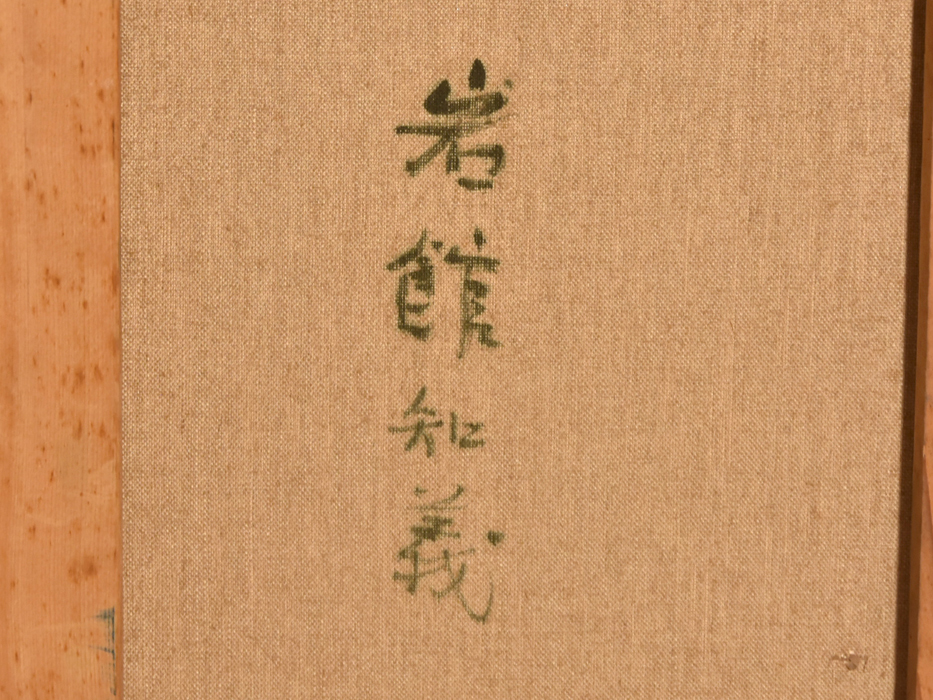 岩館知義